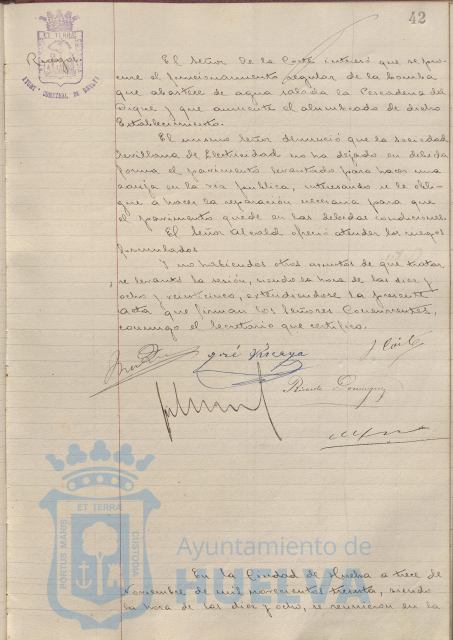 42
Ruegos
El Señor De la Corte interesó que se pro-
cure el funcionamiento regular de la bomba
que abastece de agua salada la Pescaderia del
Dique y que aumente el alumbrado de dicho
Establecimiento.
El mismo Señor denunció que la Sociedad
Sevillana de Electricidad no ha dejado en debida
forma el pavimento levantado para hacer una
zanja en la via publica, interesando se le obli-
gue a hacer la reparación necesaria para que
el pavimento quede en las debidas condiciones.
El Señor Alcalde ofreció atender los ruegos
formulados.
Y no habiendos otros asuntos de que tratar
se levantó la sesión, siendo la hora de las diez y
ocho y veinticinco, extendiendose la presente
acta que firman los Señores Concurrentes,
conmigo el Secretario que certifico.
José Viscaya
Ricardo Dominguez
ET TERRA
PORTUS MARIS
CUSTODIA
Ayuntamiento de
HUELVA
En la Ciudad de Huelva a trece de
Noviembre de mil novecientos treinta, siendo
la hora de las diez y ocho, se reunieron en la